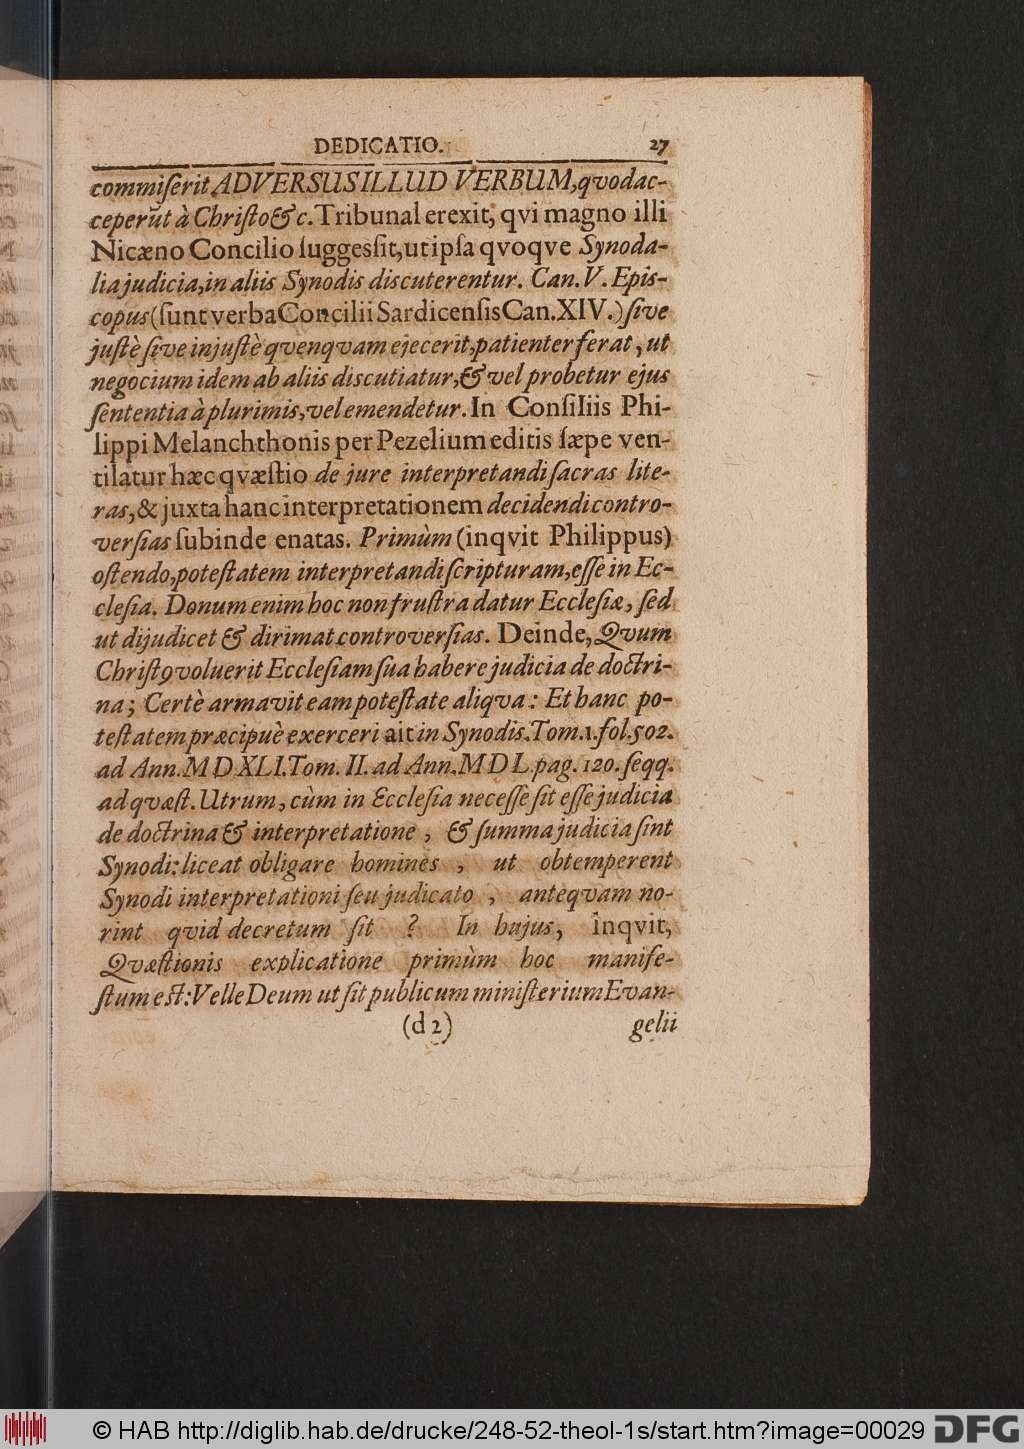 DEDICATIO. 27
commiſerit ADVERSUS ILLUD VERBUM, qvod ac-
ceperūt à Chriſto &c. Tribunal erexit, qvi magno illi
Nicæno Concilio ſuggesſit, ut ipſa qvoqve Synoda-
lia judicia, in aliis Synodis diſcuterentur. Can. V. Epis-
copus (ſunt verba Concilii Sardicenſis Can. XIV.) ſive
juſtè ſive injuſtè qvenqvam ejecerit, patienter ferat, ut
negocium idem ab aliis discutiatur, & vel probetur ejus
ſententia à plurimis, vel emendetur. In Conſiliis Phi-
lippi Melanchthonis per Pezelium editis ſæpe ven-
tilatur hæc qvæſtio de jure interpretandi ſacras lite-
ras, & juxta hanc interpretationem decidendi contro-
verſias ſubinde enatas. Primùm (inqvit Philippus)
oſtendo, poteſtatem interpretandi ſcripturam, eſſe in Ec-
cleſia. Donum enim hoc non fruſtra datur Eccleſiæ, ſed
ut dijudicet & dirimat controverſias. Deinde, Qvum
Chriſtꝯ voluerit Eccleſiam ſua habere judicia de doctri-
na; Certè armavit eam poteſtate aliqva: Et hanc po-
teſtatem præcipuè exerceri ait in Synodis. Tom. 1. fol. 502.
ad Ann. MDXLI. Tom. II. ad Ann. MDL. pag. 120. ſeqq.
ad qvæſt. Utrum, cùm in Eccleſia neceſſe ſit eſſe judicia
de doctrina & interpretatione, & ſumma judicia ſint
Synodi: liceat obligare homines, ut obtemperent
Synodi interpretationi ſeu judicato, anteqvam no-
rint qvid decretum ſit? In hujus, inqvit,
Qvæſtionis explicatione primùm hoc manife-
ſtum eſt: Velle Deum ut ſit publicum miniſterium Evan-
(d 2) gelii
© HAB http://diglib.hab.de/drucke/248-52-theol-1s/start.htm?image=00029 DFG